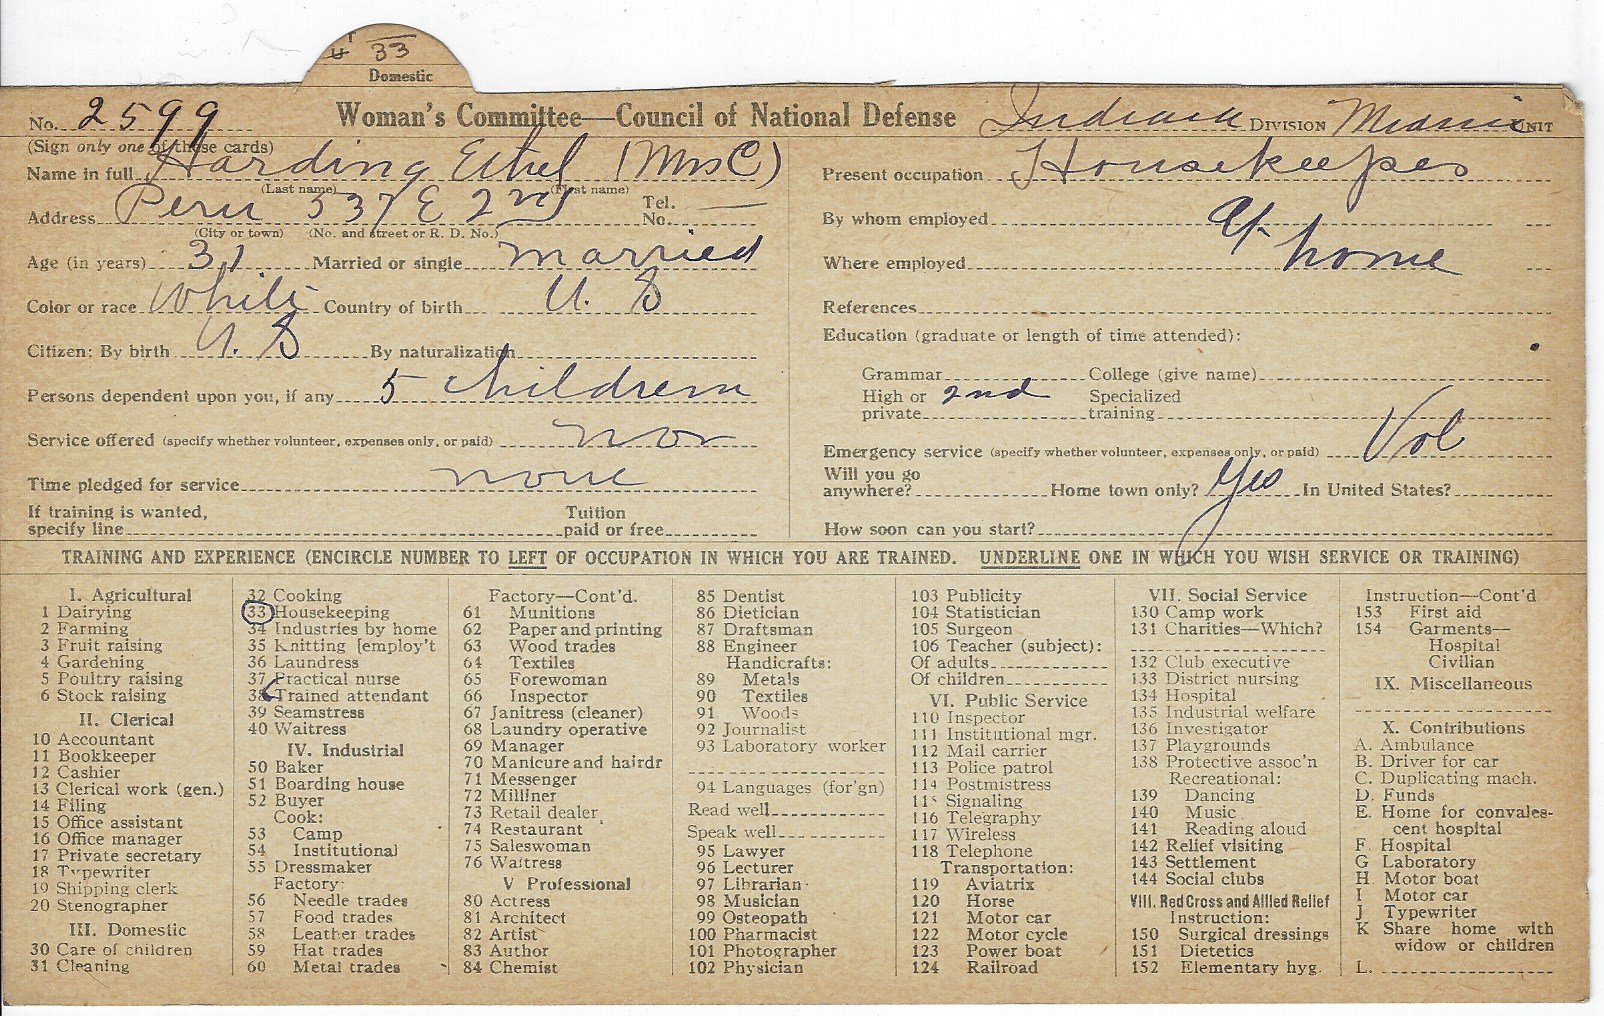 33
Domestic
No. 2599 Woman's Committee—Council of National Defense Indiana DIVISION Miami UNIT
(Sign only one of these cards)
Name in full Harding Ethel (Mrs C)
(Last name) (First name)
Address Peru 537 E 2nd Tel. No.
(City or town) (No. and street or R. D. No.)
Age (in years) 31 Married or single married
Color or race White Country of birth U. S
Citizen: By birth U. S By naturalization
Persons dependent upon you, if any 5 children
Service offered (specify whether volunteer, expenses only, or paid) non
Time pledged for service none
If training is wanted,
specify line Tuition paid or free
Present occupation Housekeeper
By whom employed
Where employed At home
References
Education (graduate or length of time attended):
Grammar College (give name)
High or private 2nd Specialized training
Emergency service (specify whether volunteer, expenses only, or paid) Vol
Will you go anywhere? Home town only? Yes In United States?
How soon can you start?
TRAINING AND EXPERIENCE (ENCIRCLE NUMBER TO LEFT OF OCCUPATION IN WHICH YOU ARE TRAINED. UNDERLINE ONE IN WHICH YOU WISH SERVICE OR TRAINING)
I. Agricultural
1 Dairying
2 Farming
3 Fruit raising
4 Gardening
5 Poultry raising
6 Stock raising
II. Clerical
10 Accountant
11 Bookkeeper
12 Cashier
13 Clerical work (gen.)
14 Filing
15 Office assistant
16 Office manager
17 Private secretary
18 Typewriter
19 Shipping clerk
20 Stenographer
III. Domestic
30 Care of children
31 Cleaning
32 Cooking
33 Housekeeping
34 Industries by home
35 Knitting [employ't
36 Laundress
37 Practical nurse
38 Trained attendant
39 Seamstress
40 Waitress
IV. Industrial
50 Baker
51 Boarding house
52 Buyer
Cook:
53 Camp
54 Institutional
55 Dressmaker
Factory:
56 Needle trades
57 Food trades
58 Leather trades
59 Hat trades
60 Metal trades
Factory—Cont'd.
61 Munitions
62 Paper and printing
63 Wood trades
64 Textiles
65 Forewoman
66 Inspector
67 Janitress (cleaner)
68 Laundry operative
69 Manager
70 Manicure and hairdr
71 Messenger
72 Milliner
73 Retail dealer
74 Restaurant
75 Saleswoman
76 Waitress
V Professional
80 Actress
81 Architect
82 Artist
83 Author
84 Chemist
85 Dentist
86 Dietician
87 Draftsman
88 Engineer
Handicrafts:
89 Metals
90 Textiles
91 Woods
92 Journalist
93 Laboratory worker
94 Languages (for'gn)
Read well
Speak well
95 Lawyer
96 Lecturer
97 Librarian
98 Musician
99 Osteopath
100 Pharmacist
101 Photographer
102 Physician
103 Publicity
104 Statistician
105 Surgeon
106 Teacher (subject):
Of adults
Of children
VI. Public Service
110 Inspector
111 Institutional mgr.
112 Mail carrier
113 Police patrol
114 Postmistress
115 Signaling
116 Telegraphy
117 Wireless
118 Telephone
Transportation:
119 Aviatrix
120 Horse
121 Motor car
122 Motor cycle
123 Power boat
124 Railroad
VII. Social Service
130 Camp work
131 Charities—Which?
132 Club executive
133 District nursing
134 Hospital
135 Industrial welfare
136 Investigator
137 Playgrounds
138 Protective assoc'n
Recreational:
139 Dancing
140 Music
141 Reading aloud
142 Relief visiting
143 Settlement
144 Social clubs
VIII. Red Cross and Allied Relief
Instruction:
150 Surgical dressings
151 Dietetics
152 Elementary hyg.
Instruction—Cont'd
153 First aid
154 Garments—
Hospital
Civilian
IX. Miscellaneous
X. Contributions
A. Ambulance
B. Driver for car
C. Duplicating mach.
D. Funds
E. Home for convales-
cent hospital
F. Hospital
G Laboratory
H. Motor boat
I Motor car
J Typewriter
K Share home with
widow or children
L.